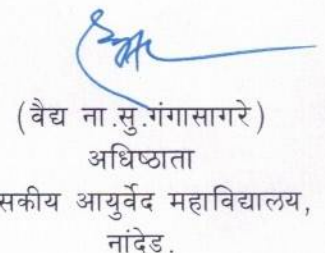 (वैद्य ना.सु.गंगासागरे)
अधिष्ठाता
सकीय आयुर्वेद महाविद्यालय,
नांदेड.